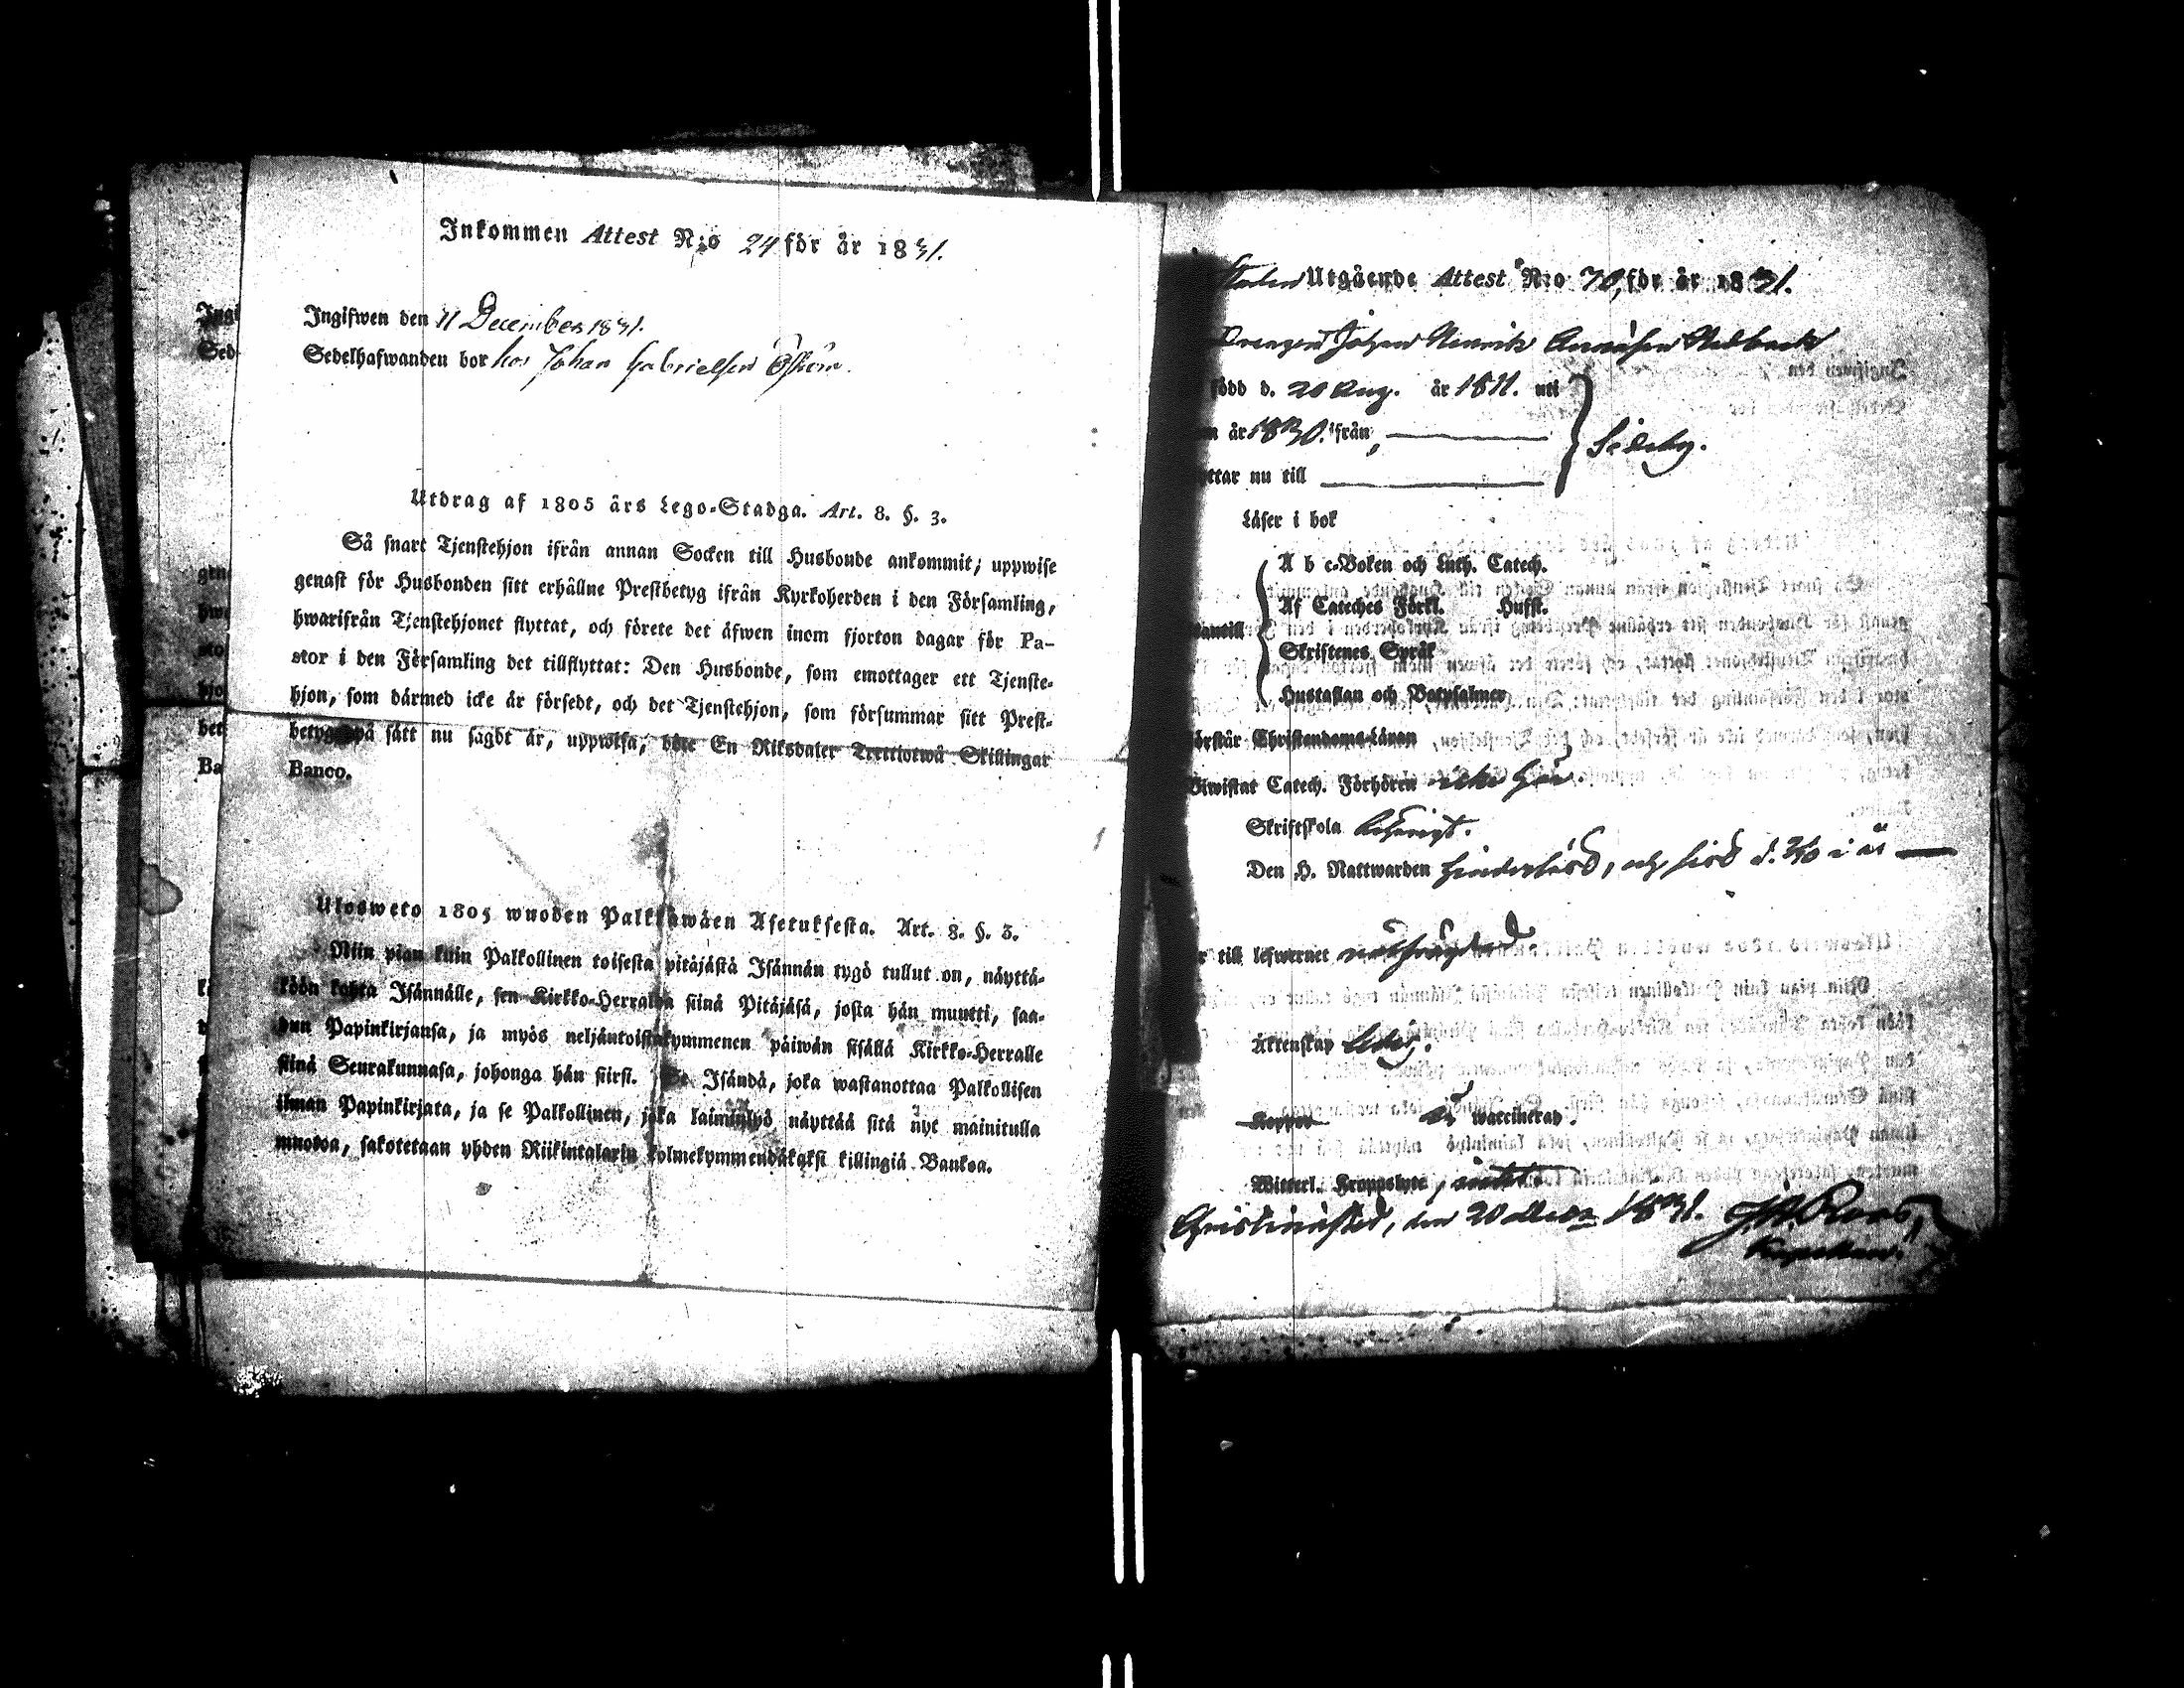 Inkommen Attest N:o 24 för år 1831.
Ingifwen den 11 December 1831.
Sedelhafwanden bor hos Johan Gabrielsson
Utdrag af 1805 års Lego-Stadga. Art. 8. §. 3.
Så snart Tjenstehjon ifrån annan Socken till Husbonde ankommit; uppwise
genast för Husbonden sitt erhållne Prestbetyg ifrån Kyrkoherden i den Församling,
hwarifrån Tjenstehjonet flyttat, och förete det äfwen inom fjorton dagar för Pa-
stor i den Församling det tillflyttat: Den Husbonde, som emottager ett Tjenste-
hjon, som därmed icke är försedt, och det Tjenstehjon, som försummar sitt Prest-
betyg på sätt nu sagdt är, uppwisa, böte En Riksdaler Trettiotwå Skillingar
Banco.
Ulosweto 1805 wuoden Palkkawäen Asetuksesta. Art. 8. §. 3.
Niin pian kuin Palkollinen toisesta pitäjästä Isännän tygö tullut on, näyttä-
köön kohta Isännälle, sen Kirkko-Herralda siinä Pitäjäsä, josta hän muutti, saa-
dun Papinkirjansa, ja myös neljäntoistakymmenen päiwän sisällä Kirkko-Herralle
siinä Seurakunnasa, johonga hän siirsi. Se Isändä, joka wastanottaa Palkollisen
ilman Papinkirjata, ja se Palkollinen, joka laiminlyö näyttää sitä nyt mainitulla
muodoa, sakotetaan yhden Riikintalarin kolmekymmendäkaksi killingiä Bankoa.
Utgående Attest N:o 70, för år 1831.
Drengen Johan Henrik
född d. 20 Aug. år 1811. uti
år 1830. ifrån
ttar nu till
Sideby.
Läser i bok
A b c-Boken och Luth. Catech.
Af Cateches Förkl. Hufst.
antill
Skriftenes Språk
Hustaflan och Botpsalmer
örstår Christendoms-Läran
Biwistat Catech. Förhören icke här.
Skriftskola
Den H. Nattwarden
r till lefwernet
Äktenskap ledig.
Koppor waccinerad.
Witterl. Kroppslyte, intet.
Christinestad, den 20 1831.